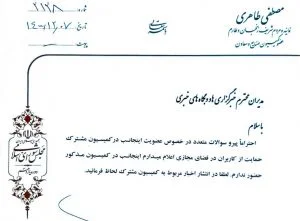 مصطفی طاهری
نماینده مردم شریف زنجان و طارم
عضو کمیسیون صنایع و معادن
بسمه تعالی
شماره: ۲۱۲۸
تاریخ: ۱۴۰۰/۱۲/۰۷
پیوست:
مدیران محترم خبرگزاری ها و پایگاه های خبری
با سلام
احتراماً پیرو سوالات متعدد در خصوص عضویت اینجانب در کمیسیون مشترک
حمایت از کاربران در فضای مجازی اعلام میدارم اینجانب در کمیسیون مذکور
حضور ندارم. لطفا در انتشار اخبار مربوط به کمیسیون مشترک لحاظ فرمائید.
مجلس شورای اسلامی